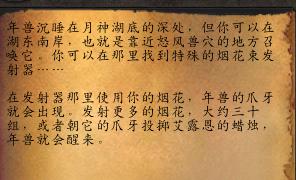 年兽沉睡在月神湖底的深处，但你可以在
湖东南岸，也就是靠近怒风兽穴的地方召
唤它。你可以在那里找到特殊的烟花束发
射器……
在发射器那里使用你的烟花，年兽的爪牙
就会出现。发射更多的烟花，大约三十
组，或者朝它的爪牙投掷艾露恩的蜡烛，
年兽就会醒来。